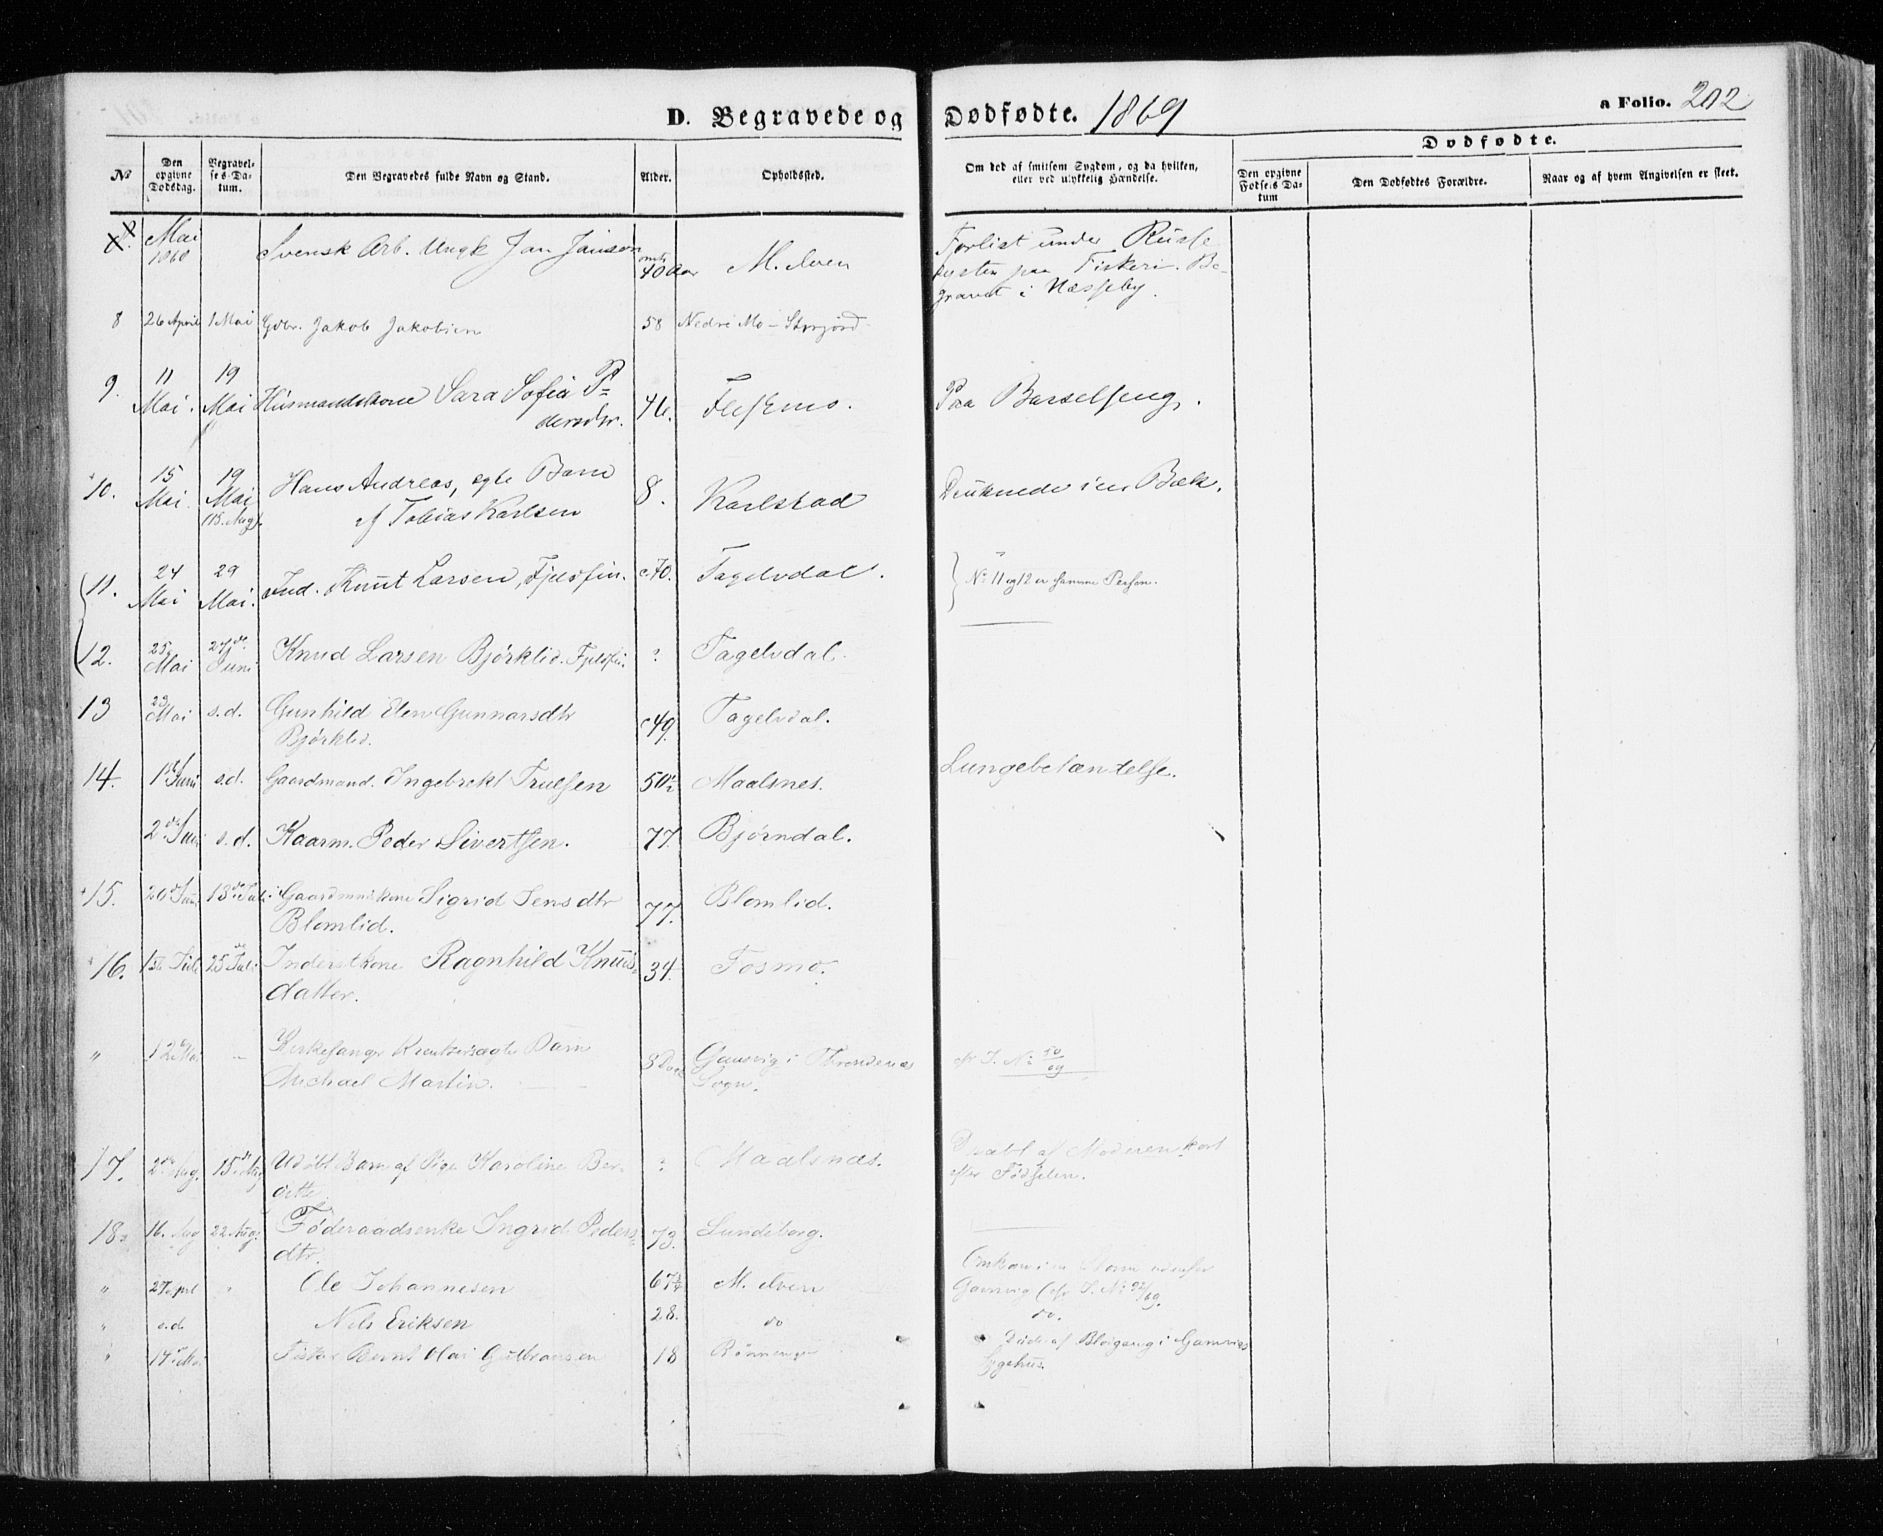 D. Begravede og Dødfødte. 1869
a Folio. 202
Dødfødte.
No
Den opgivne Dødsdag.
Begravelses Datum.
Den Begravedes fulde Navn og Stand.
Alder.
Opholdssted.
Om død af smitsom Sygdom, og da hvilken, eller ved ulykkelig Hændelse.
Den opgivne Fødsels Datum
Den Dødfødtes Forældre.
Naar og af hvem Angivelsen er skeet.
Mai 1868 Svensk Arb. Ungk Jan Janson 40 Aar M. elven Forlist under Russe
kysten paa Fiskeri. Be-
gravet i Næsseby.
8 26 April 1 Mai Gdbr. Jakob Jakobsen 58 Nedre Mo - Storjord
9. 11 Mai. 19 Mai Husmandskone Sara Sofia P-
dersdtr. 46. Fleskmo. Paa Barselseng.
10. 15 Mai. 19 Mai (15. Aug). Hans Andreas, egte Barn
af Tobias Karlsen 8. Karlstad Druknede i en Bæk.
11. 24 Mai 29 Mai. Ind. Knut Larsen, Fjeldfin. c. 70. Tagelvdal. No 11 og 12 er samme Person.
12. 25 Mai 27de Juni Knud Larsen Bjørklid. Fjeldfin. ? Tagelvdal.
13 23 Mai s.d. Gunhild Elen Gunnarsdtr
Bjørklid. c 49. Tagelvdal.
14. 1ste Juni s.d. Gaardmand. Ingebrekt Truelsen 50½ Maalsnes. Lungebetændelse.
2de Juni s.d. Kaarm. Peder Sivertsen. 77. Bjørndal.
15. 20de Juni 18de Juli Gaardmandskone Sigrid Jensdtr
Blomlid. 77. Blomlid.
16. 1ste Juli 25de Juli Inderstkone Ragnhild Knuds-
datter. 34. Fosmo.
" 12 Mai — Kirkesanger Kreutzers ægte Barn
Michael Martin. Gausvig i Throndenæs
Sogn. cfr J. No 50/69
17. 2de Aug. 15de Aug Udøbt Barn af Pige Karoline Ber-
? Maalsnæs. Dræbt af Moderen kort
efter Fødselen.
18. 16. Aug 22 Aug. Føderaadsenke Ingrid Peders-
dtr. 73. Lundeborg.
" 27 April " Ole Johannesen 67¾ M. elven Omkom i en Storm udenfor
Gamvig (cfr J. No 92/69.
" s.d. Nils Eriksen 28. do do.
" 14 Mai Fisker Bernt Olai Gulbransen 18 Rønningen Døde af Blodgang i Gamvigs
Sygehus.